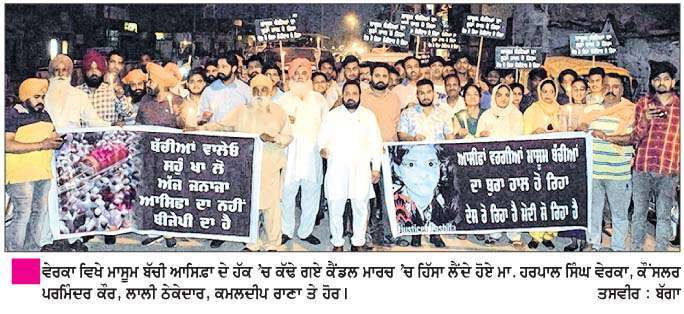 ਬੱਚੀਆਂ ਵਾਲੇਓ
ਸਹੁੰ ਖਾ ਲੋ
ਅੱਜ ਜਨਾਜਾ
ਆਸਿਫਾ ਦਾ ਨਹੀਂ
ਬੀਜੇਪੀ ਦਾ ਹੈ
ਆਸਿਫਾਂ ਵਰਗੀਆਂ ਮਾਸੂਮ ਬੱਚੀਆਂ
ਦਾ ਬੁਰਾ ਹਾਲ ਹੋ ਰਿਹਾ
ਦੇਸ਼ ਰੋ ਰਿਹਾ ਹੈ ਮੋਦੀ ਸੌ ਰਿਹਾ ਹੈ
ਵੇਰਕਾ ਵਿਖੇ ਮਾਸੂਮ ਬੱਚੀ ਆਸਿਫ਼ਾ ਦੇ ਹੱਕ ’ਚ ਕੱਢੇ ਗਏ ਕੈਂਡਲ ਮਾਰਚ ’ਚ ਹਿੱਸਾ ਲੈਂਦੇ ਹੋਏ ਮਾ. ਹਰਪਾਲ ਸਿੰਘ ਵੇਰਕਾ, ਕੌਂਸਲਰ
ਪਰਮਿੰਦਰ ਕੌਰ, ਲਾਲੀ ਠੇਕੇਦਾਰ, ਕਮਲਦੀਪ ਰਾਣਾ ਤੇ ਹੋਰ। ਤਸਵੀਰ : ਬੱਗਾ